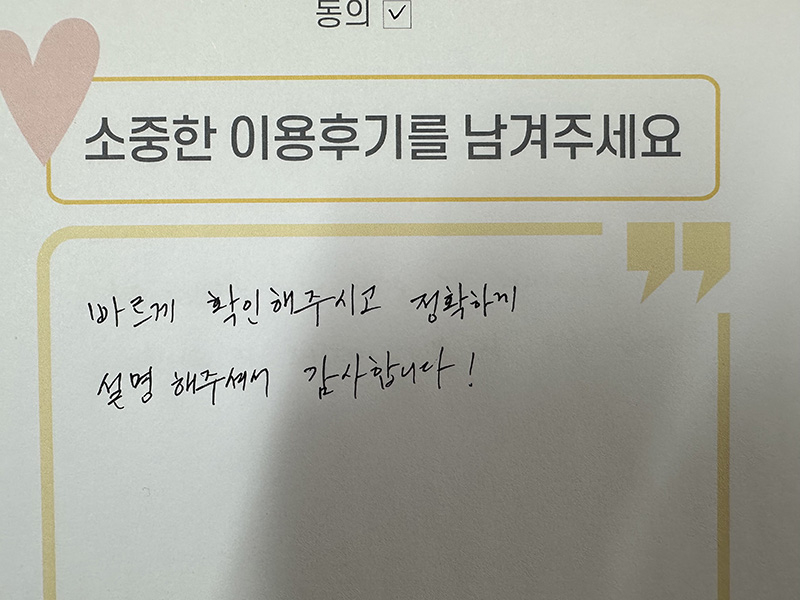 동의 ☑
소중한 이용후기를 남겨주세요
빠르게 확인해주시고 정확하게
설명 해주셔서 감사합니다!